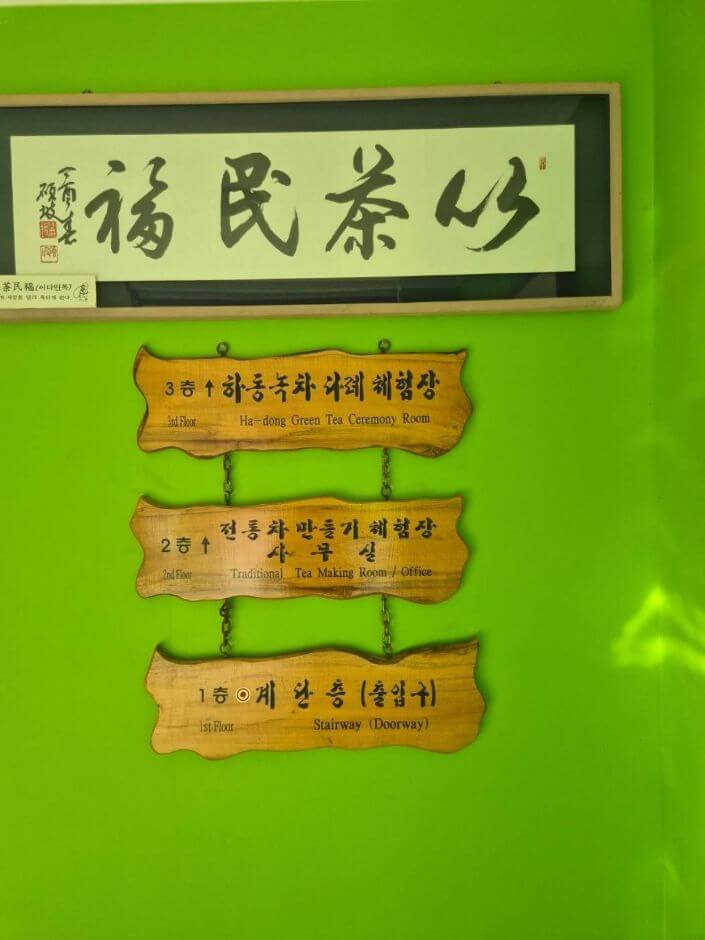 以茶民福
丁酉春
碩坡
茶民福(이다민복)
3층 ↑ 하동녹차 다례 체험장
3rd Floor Ha-dong Green Tea Ceremony Room
2층 ↑ 전통차 만들기 체험장
사무실
2nd Floor Traditional Tea Making Room / Office
1층 ◉ 계단층 (출입구)
1st Floor Stairway (Doorway)